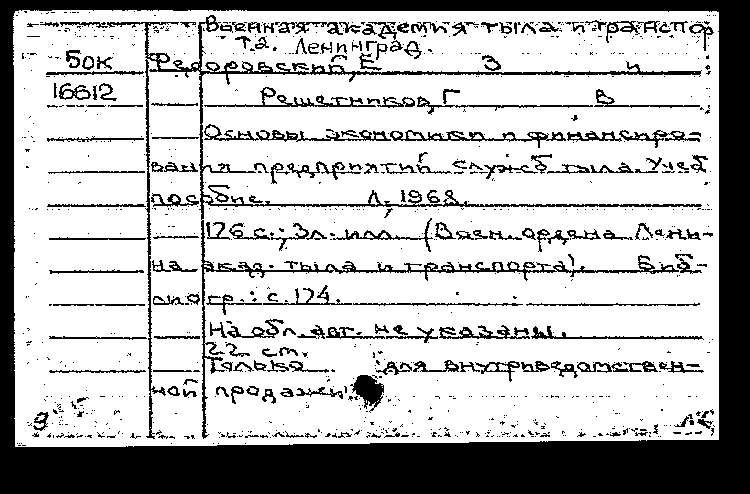 Военная академия тыла и транспор
та. Ленинград.
БОК Федоровский, Е З и
16612 Решетников, Г В
Основы экономики и финансиро-
вания предприятий служб тыла. Учеб
пособие. Л., 1968.
176 с.; 3 л. илл. (Воен. ордена Лени-
на акад. тыла и транспорта). Биб-
лиогр.: с. 174.
На обл. авт. не указаны.
22 cm.
Только для внутриведомствен-
ной продажи